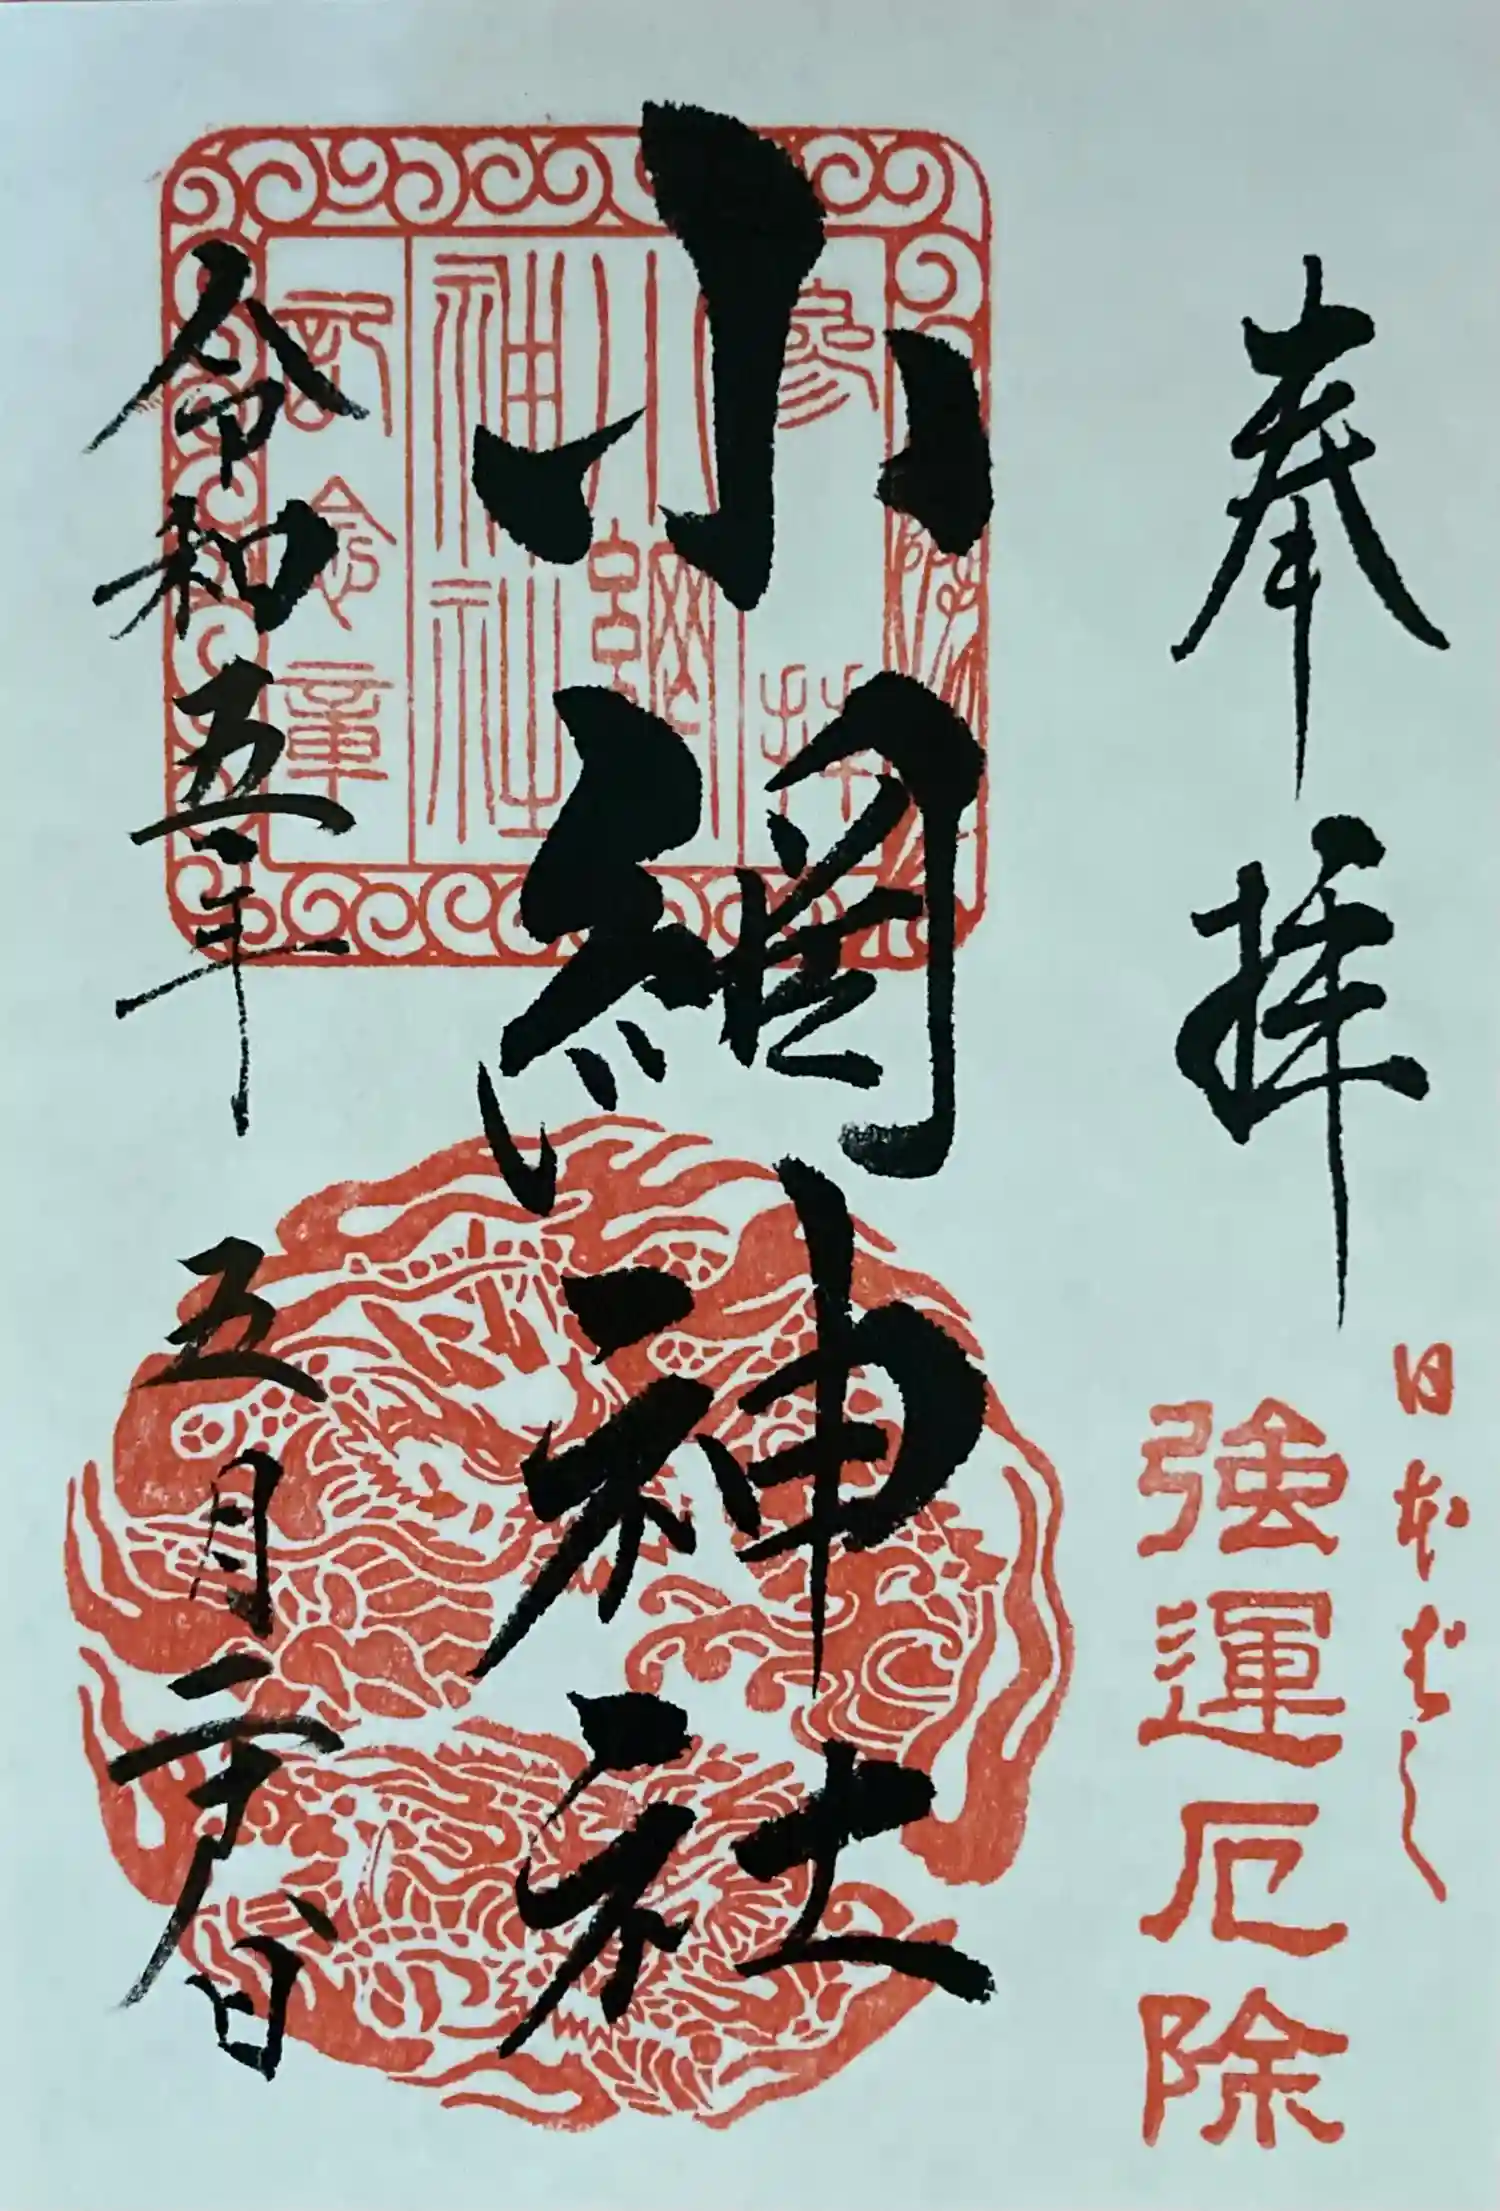 日本ばし
奉拝
強運厄除
小網神社
参拝
小網
神社
記念章
令和五年
五月二十八日